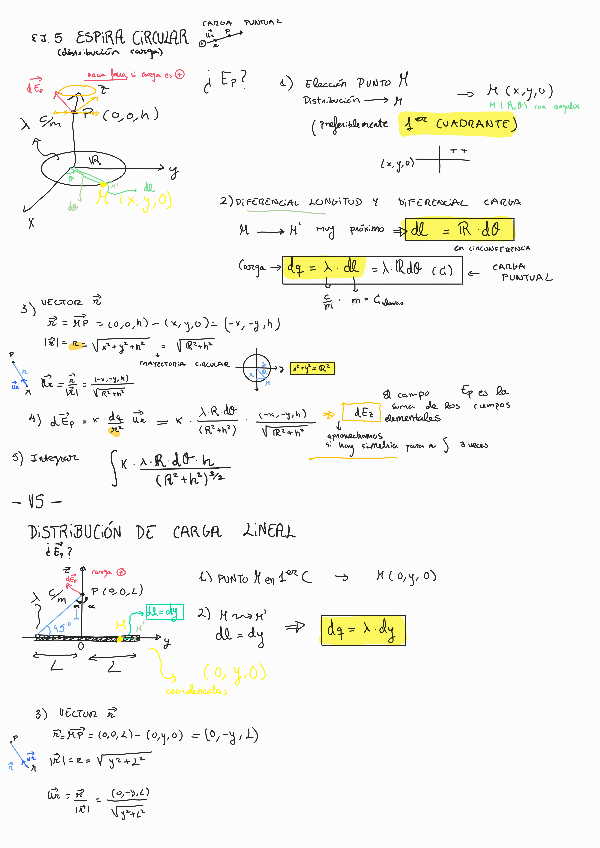 EJ. 5 ESPIRA CIRCULAR
(distribución carga)
CARGA PUNTUAL
¿ Ep?
hacia fuera, si carga es +
dEp
z
P (0,0,h)
λ C/m
R
y
θ
dl
dθ
M (x,y,0)
x
1) Elección PUNTO M → M (x,y,0)
Distribución → M
M (R,θ) con ángulos
(preferiblemente 1er CUADRANTE)
(x,y,0) ++
2) DIFERENCIAL LONGITUD Y DIFERENCIAL CARGA
M → M' muy próximo ⇒ dl = R·dθ
en CIRCUNFERENCIA
Carga → dq = λ·dl = λ·Rdθ (C) ← CARGA PUNTUAL
C/m · m = C
3) VECTOR r
r = MP = (0,0,h) − (x,y,0) = (-x,-y,h)
|r| = r = √x²+y²+h² = √R²+h²
TRAYECTORIA CIRCULAR
x²+y² = R²
ur = r/|r| = (-x,-y,h)/√R²+h²
4) dEp = K dq/r² ur = K · λ·R·dθ/(R²+h²) · (-x,-y,h)/√R²+h² ⇒ dEz
El campo Ep es la suma de los campos elementales
aprovechamos si hay simetría para no ∫ 3 veces
5) Integrar ∫ K · λ·R·dθ·h/(R²+h²)^3/2
— V5 —
DISTRIBUCIÓN DE CARGA LINEAL
¿Ep?
z
carga +
dEp
P (0,0,L)
λ C/m
α
45°
M M'
dl = dy
0
y
L L
(0, y, 0)
coordenadas
1) PUNTO M en 1er C → M (0,y,0)
2) M → M'
dl = dy ⇒ dq = λ·dy
3) VECTOR r
r = MP = (0,0,L) − (0,y,0) = (0,-y,L)
|r| = r = √y²+L²
ur = r/|r| = (0,-y,L)/√y²+L²